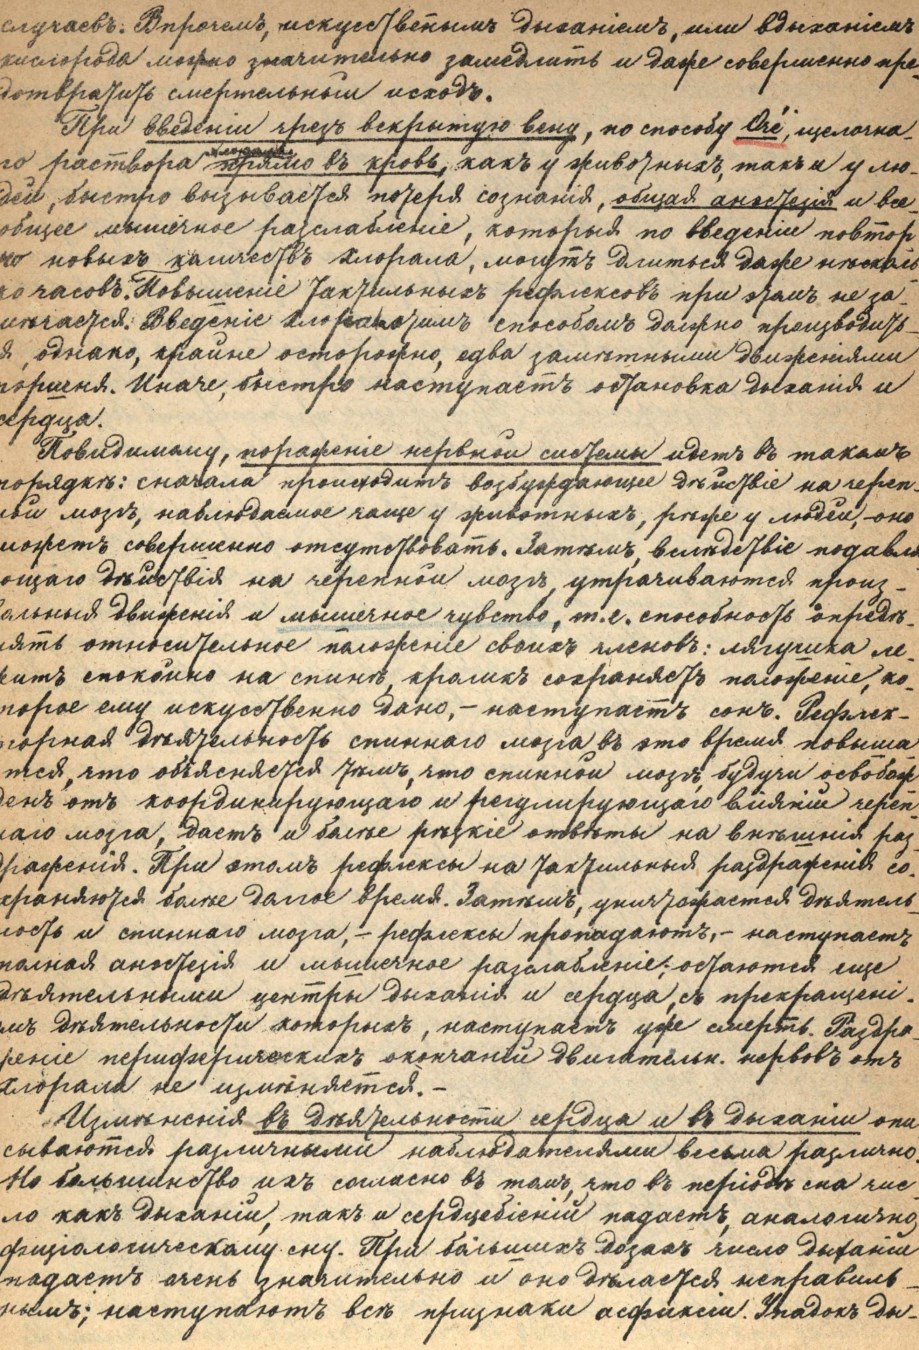 случаевъ. Впрочемъ, искусственнымъ дыханіемъ, или вдыханіемъ
кислорода можно значительно замедлить и даже совершенно пре-
дотвратить смертельный исходъ.
При введеніи чрезъ вскрытую вену, по способу Oré, щелочна-
го раствора хлорала прямо въ кровь, какъ у животныхъ, такъ и у лю-
дей, быстро вызывается потеря сознанія, общая анэстезія и все-
общее мышечное разслабленіе, которыя по введеніи повтор
но новыхъ количествъ хлорала, могутъ длиться даже нѣсколь
ко часовъ. Повышеніе тактильныхъ рефлексовъ при этомъ не за-
мѣчается. Введеніе хлорала этимъ способомъ должно производить-
я, однако, крайне осторожно, едва замѣтными движеніями
поршня. Иначе, быстро наступаетъ остановка дыханія и
сердца.
Повидимому, пораженіе нервной системы идетъ въ такомъ
порядкѣ: сначала происходитъ возбуждающее дѣйствіе на череп-
ной мозгъ, наблюдаемое чаще у животныхъ, рѣже у людей,- оно
можетъ совершенно отсутствовать. Затѣмъ, вслѣдствіе подавля
ющаго дѣйствія на черепной мозгъ, утрачиваются произ-
вольныя движенія и мышечное чувство, т.е. способность опредѣ-
лять относительное положеніе своихъ членовъ: лягушка ле-
житъ спокойно на спинѣ, кроликъ сохраняетъ положеніе, ко-
торое ему искусственно дано,- наступаетъ сонъ. Рефлек-
торная дѣятельность спиннаго мозга въ это время повыша
ется, что объясняется тѣмъ, что спинной мозгъ, будучи освобож
денъ отъ координирующаго и регулирующаго вліянія череп-
наго мозга, даетъ и болѣе рѣзкіе отвѣты на внѣшнія раз-
драженія. При этомъ рефлексы на тактильныя раздраженія со-
храняются болѣе долгое время. Затѣмъ, уничтожается дѣятель-
ность и спиннаго мозга,- рефлексы пропадаютъ,- наступаетъ
полная анэстезія и мышечное разслабленіе; остаются еще
дѣятельными центры дыханія и сердца, съ прекращені-
мъ дѣятельности которыхъ, наступаетъ уже смерть. Раздра
женіе периферическихъ окончаній двигательн. нервовъ отъ
хлорала не измѣняется.-
Измѣненія въ дѣятельности сердца и въ дыханіи опи
сываются различными наблюдателями весьма различно.
Но большинство ихъ согласно въ томъ, что въ періодѣ сна чис-
ло какъ дыханій, такъ и сердцебіеній падаетъ, аналогично
физіологическому сну. При большихъ дозахъ число дыханій
падаетъ очень значительно и оно дѣлается неправиль-
нымъ; наступаютъ всѣ признаки асфиксіи. Упадокъ ды-